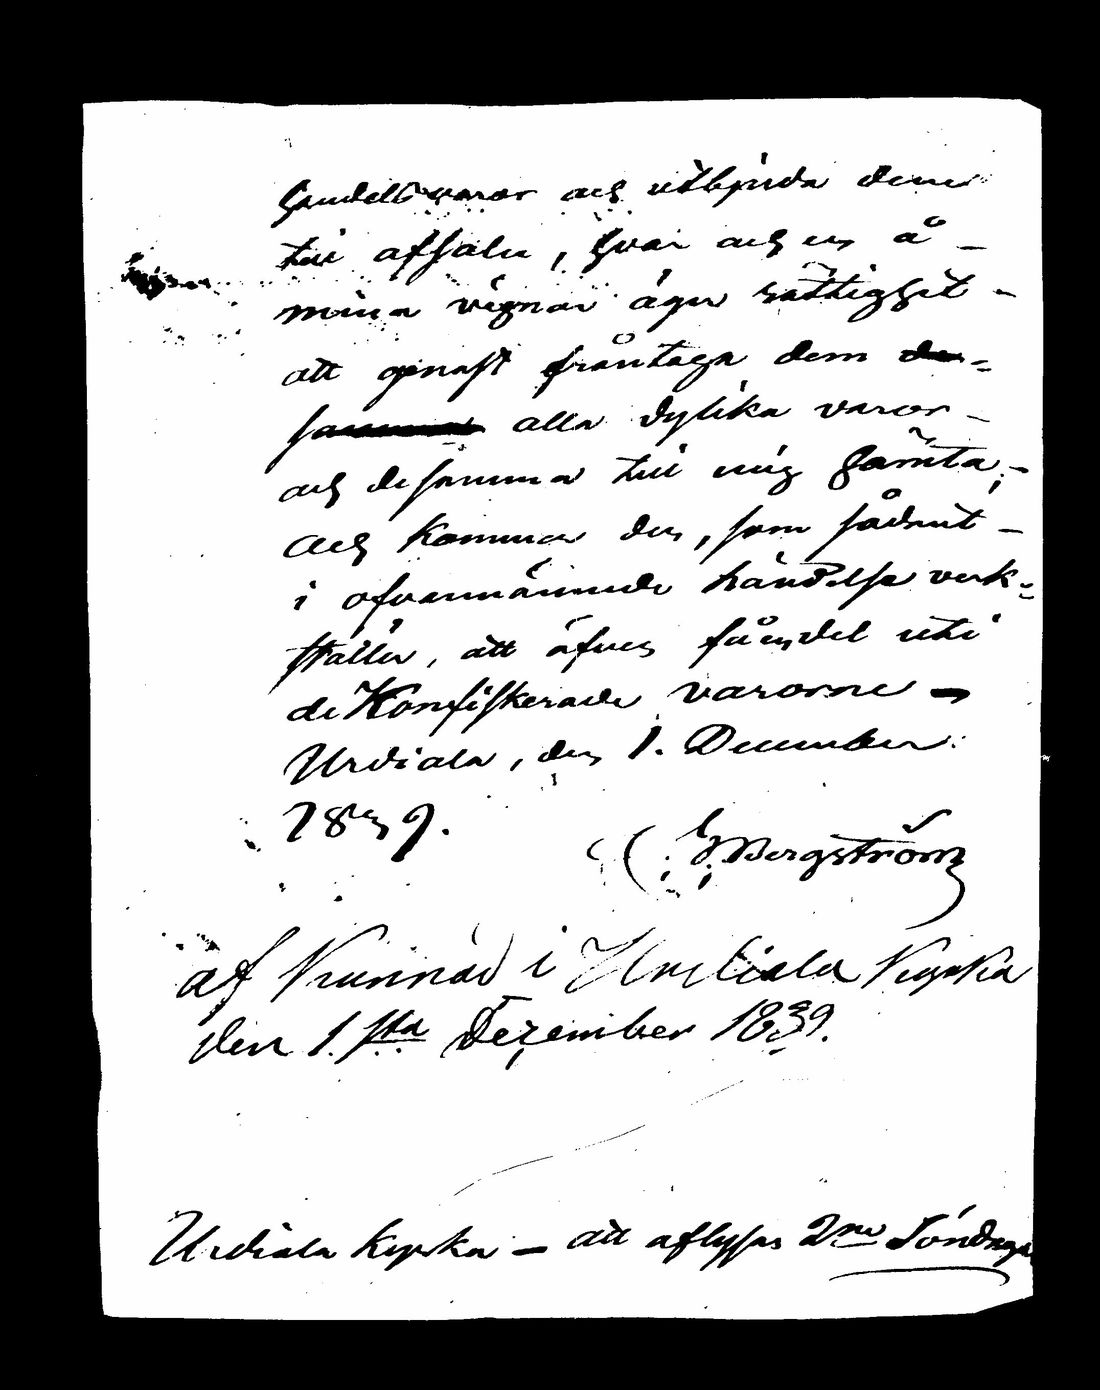 handels varor och utbjuda dem
till afsalu, hvar och en å
mina vägnar äger rättighet
att genast fråntaga dem de-
samma alla dylika varor
och desamma till mig hämta;
och kommer den, som sådant
i ofvannämnde händelse verk-
ställer, att äfven få en del uti
de Konfiskerade varorne
Urdiala, den 1. December
1839.
Bergström
af Kunnad i Urdiala Kyrka
den 1. sta Dezember 1839.
Urdiala Kyrka – att aflysas 2ne Söndagar